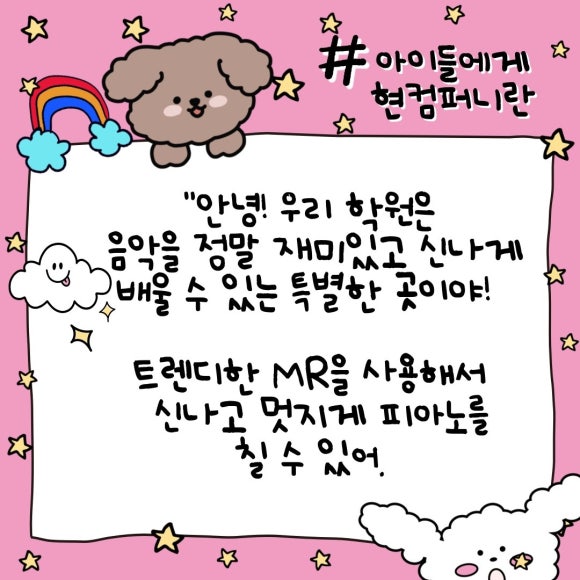 # 아이들에게
현컴퍼니란
"안녕! 우리 학원은
음악을 정말 재미있고 신나게
배울 수 있는 특별한 곳이야!
트렌디한 MR을 사용해서
신나고 멋지게 피아노를
칠 수 있어.